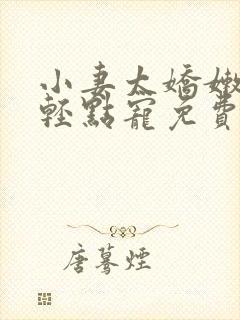 小妻太嬌嫩
輕點寵免費
唐驀煙